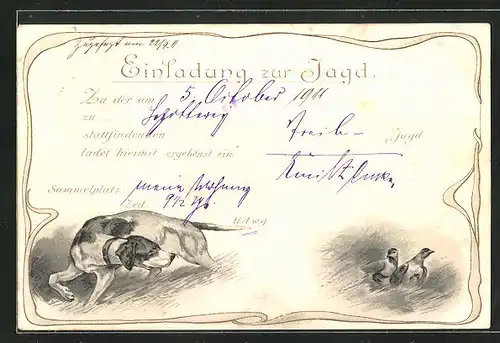 Zugesagt am 22/9 11
Einladung zur Jagd.
Zu der am 5. October 1911
zu
stattfindenden Treib- Jagd
ladet hiermit ergebenst ein
Sammelplatz meine Wohnung
Zeit 9½ Uhr